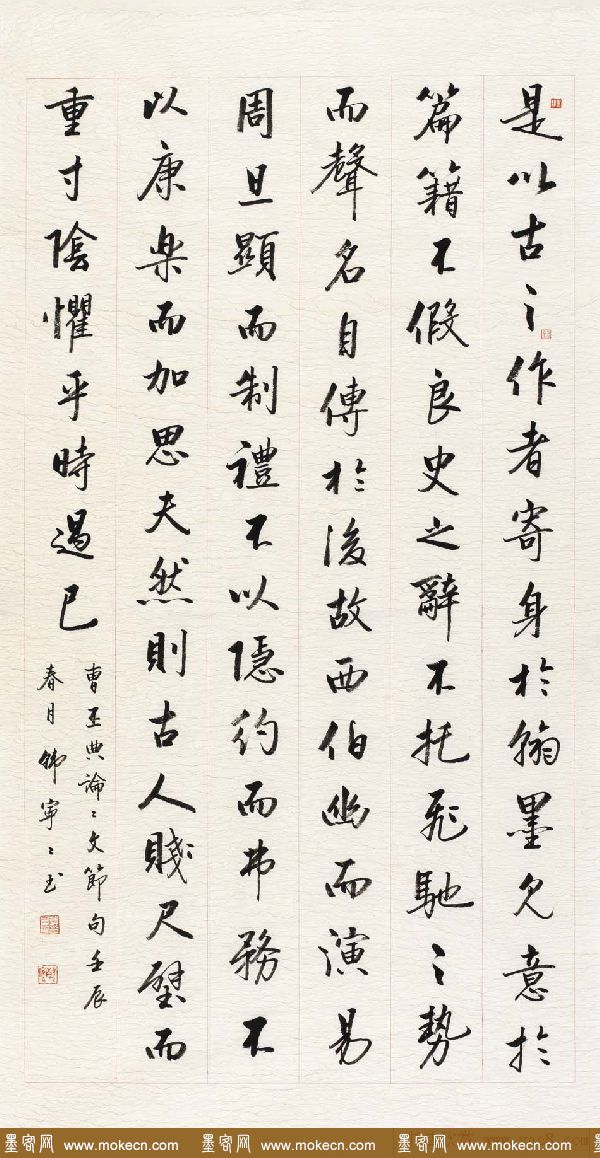 是以古之作者寄身於翰墨見意於
篇籍不假良史之辭不托飛馳之勢
而聲名自傳於後故西伯幽而演易
周旦顯而制禮不以隱約而弗務不
以康楽而加思夫然則古人賤尺璧而
重寸陰懼乎時過已
曹丕典論〻文節句壬辰
春月韩寧〻书
墨客网 www.mokecn.com 墨客网 www.mokecn.com 墨客网 www.mokecn.com